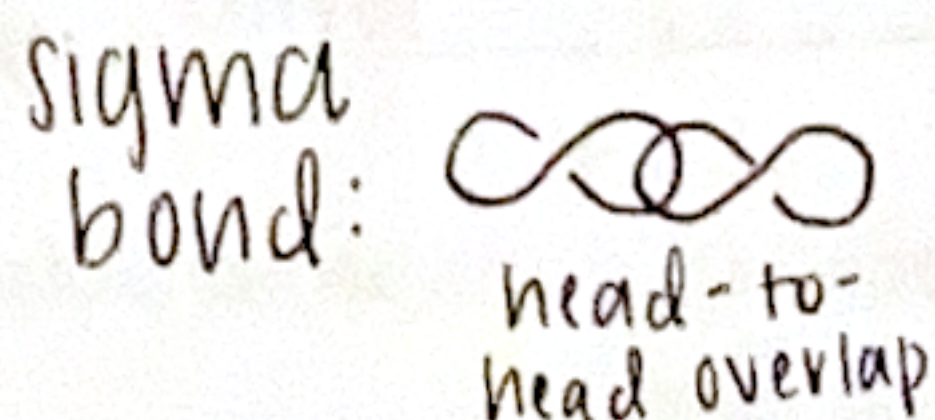 sigma
bond:
head-to-
head overlap